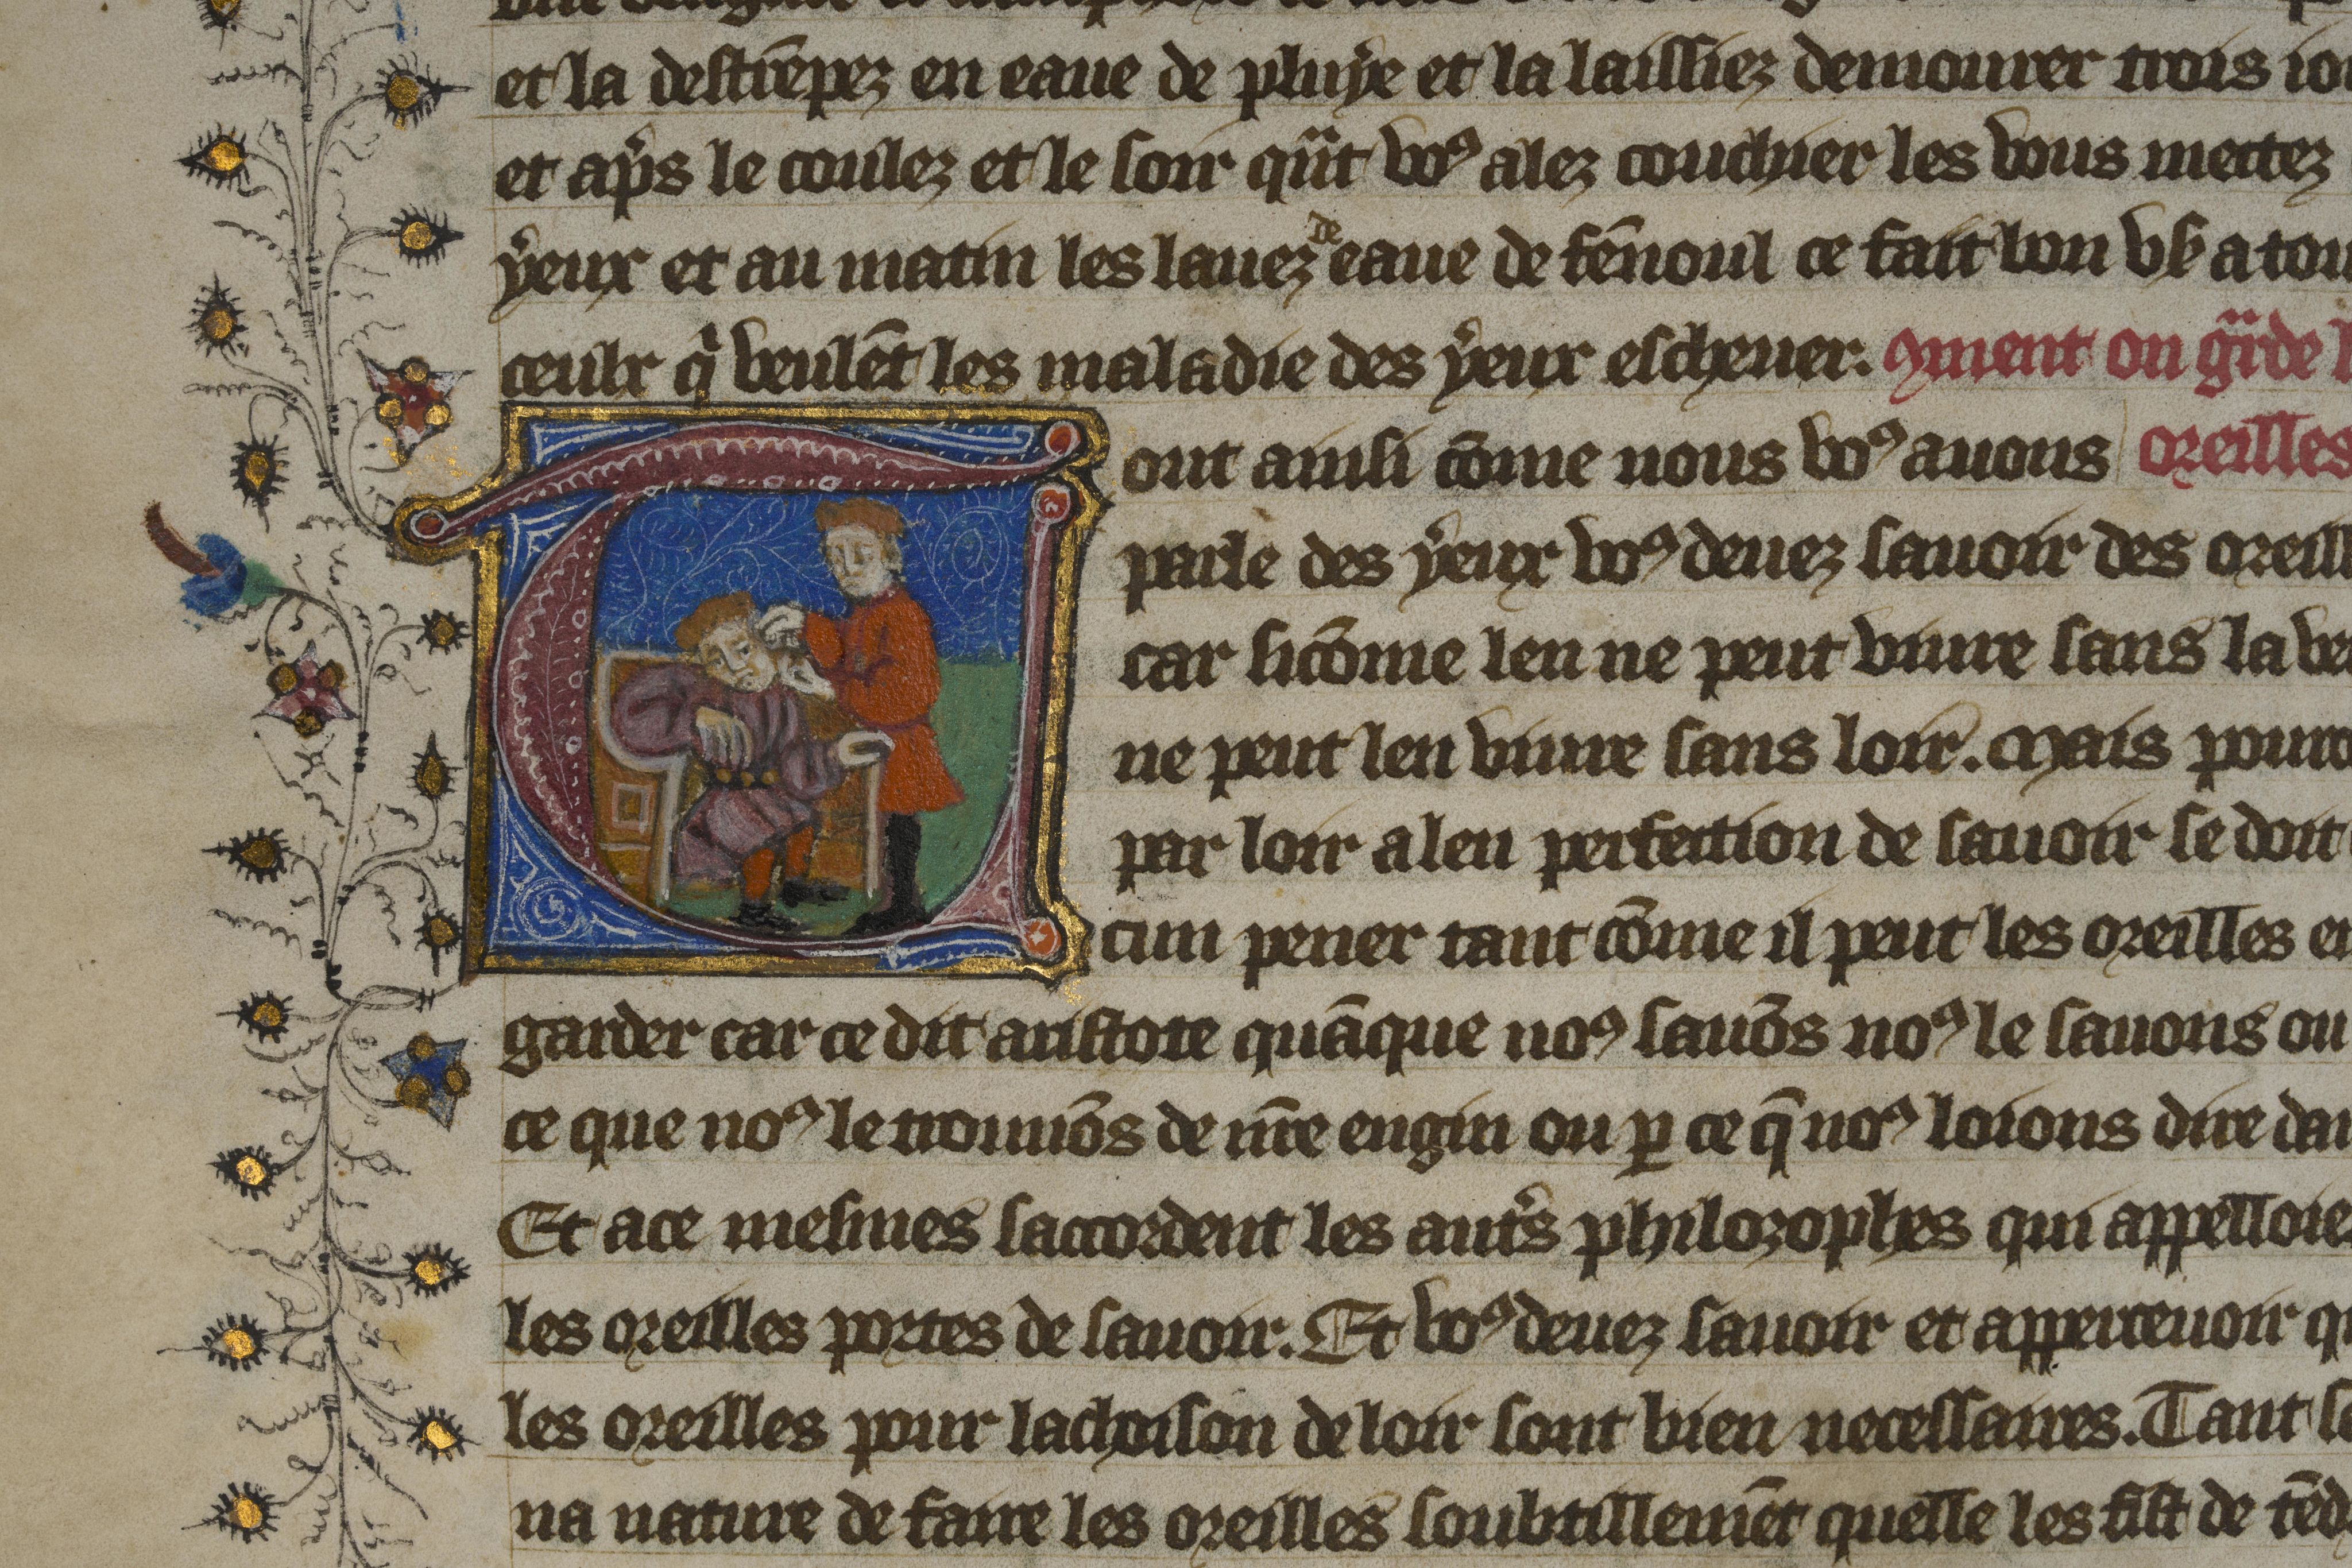 et la destrēpez en eaue de pluye et la laissiez demourer trois
et ap̄s le coulez et le soir q̄nt voꝯ alez couchier les vous mettez
yeux et au matin les lauez de eaue de fēnoul ce fait bon a
ceulx q̄ veulēt les maladie des yeux escheuer. ꝯment on garde
out ainsi cōme nous voꝯ auons oreilles
parle des yeux voꝯ deuez sauoir des
car sicōme len ne peut viure sans la
ne peut len viure sans loir. Mais
par loir a len perfection de sauoir se doit
cun pener tant cōme il peut les oreilles
garder car ce dit aristote quāque noꝯ sauōs noꝯ le sauons ou
ce que noꝯ le trouuōs de nr̄e engin ou ꝑ ce q̄ noꝯ loions dire
Et a ce mesmes saccordent les autꝰs philozophes qui
les oreilles portes de sauoir. Et voꝯ deuez sauoir et apperceuoir
les oreilles pour lachoison de loir sont bien necessaires. Tant
na nature de faire les oreilles soubtillemēt quelle les fist de